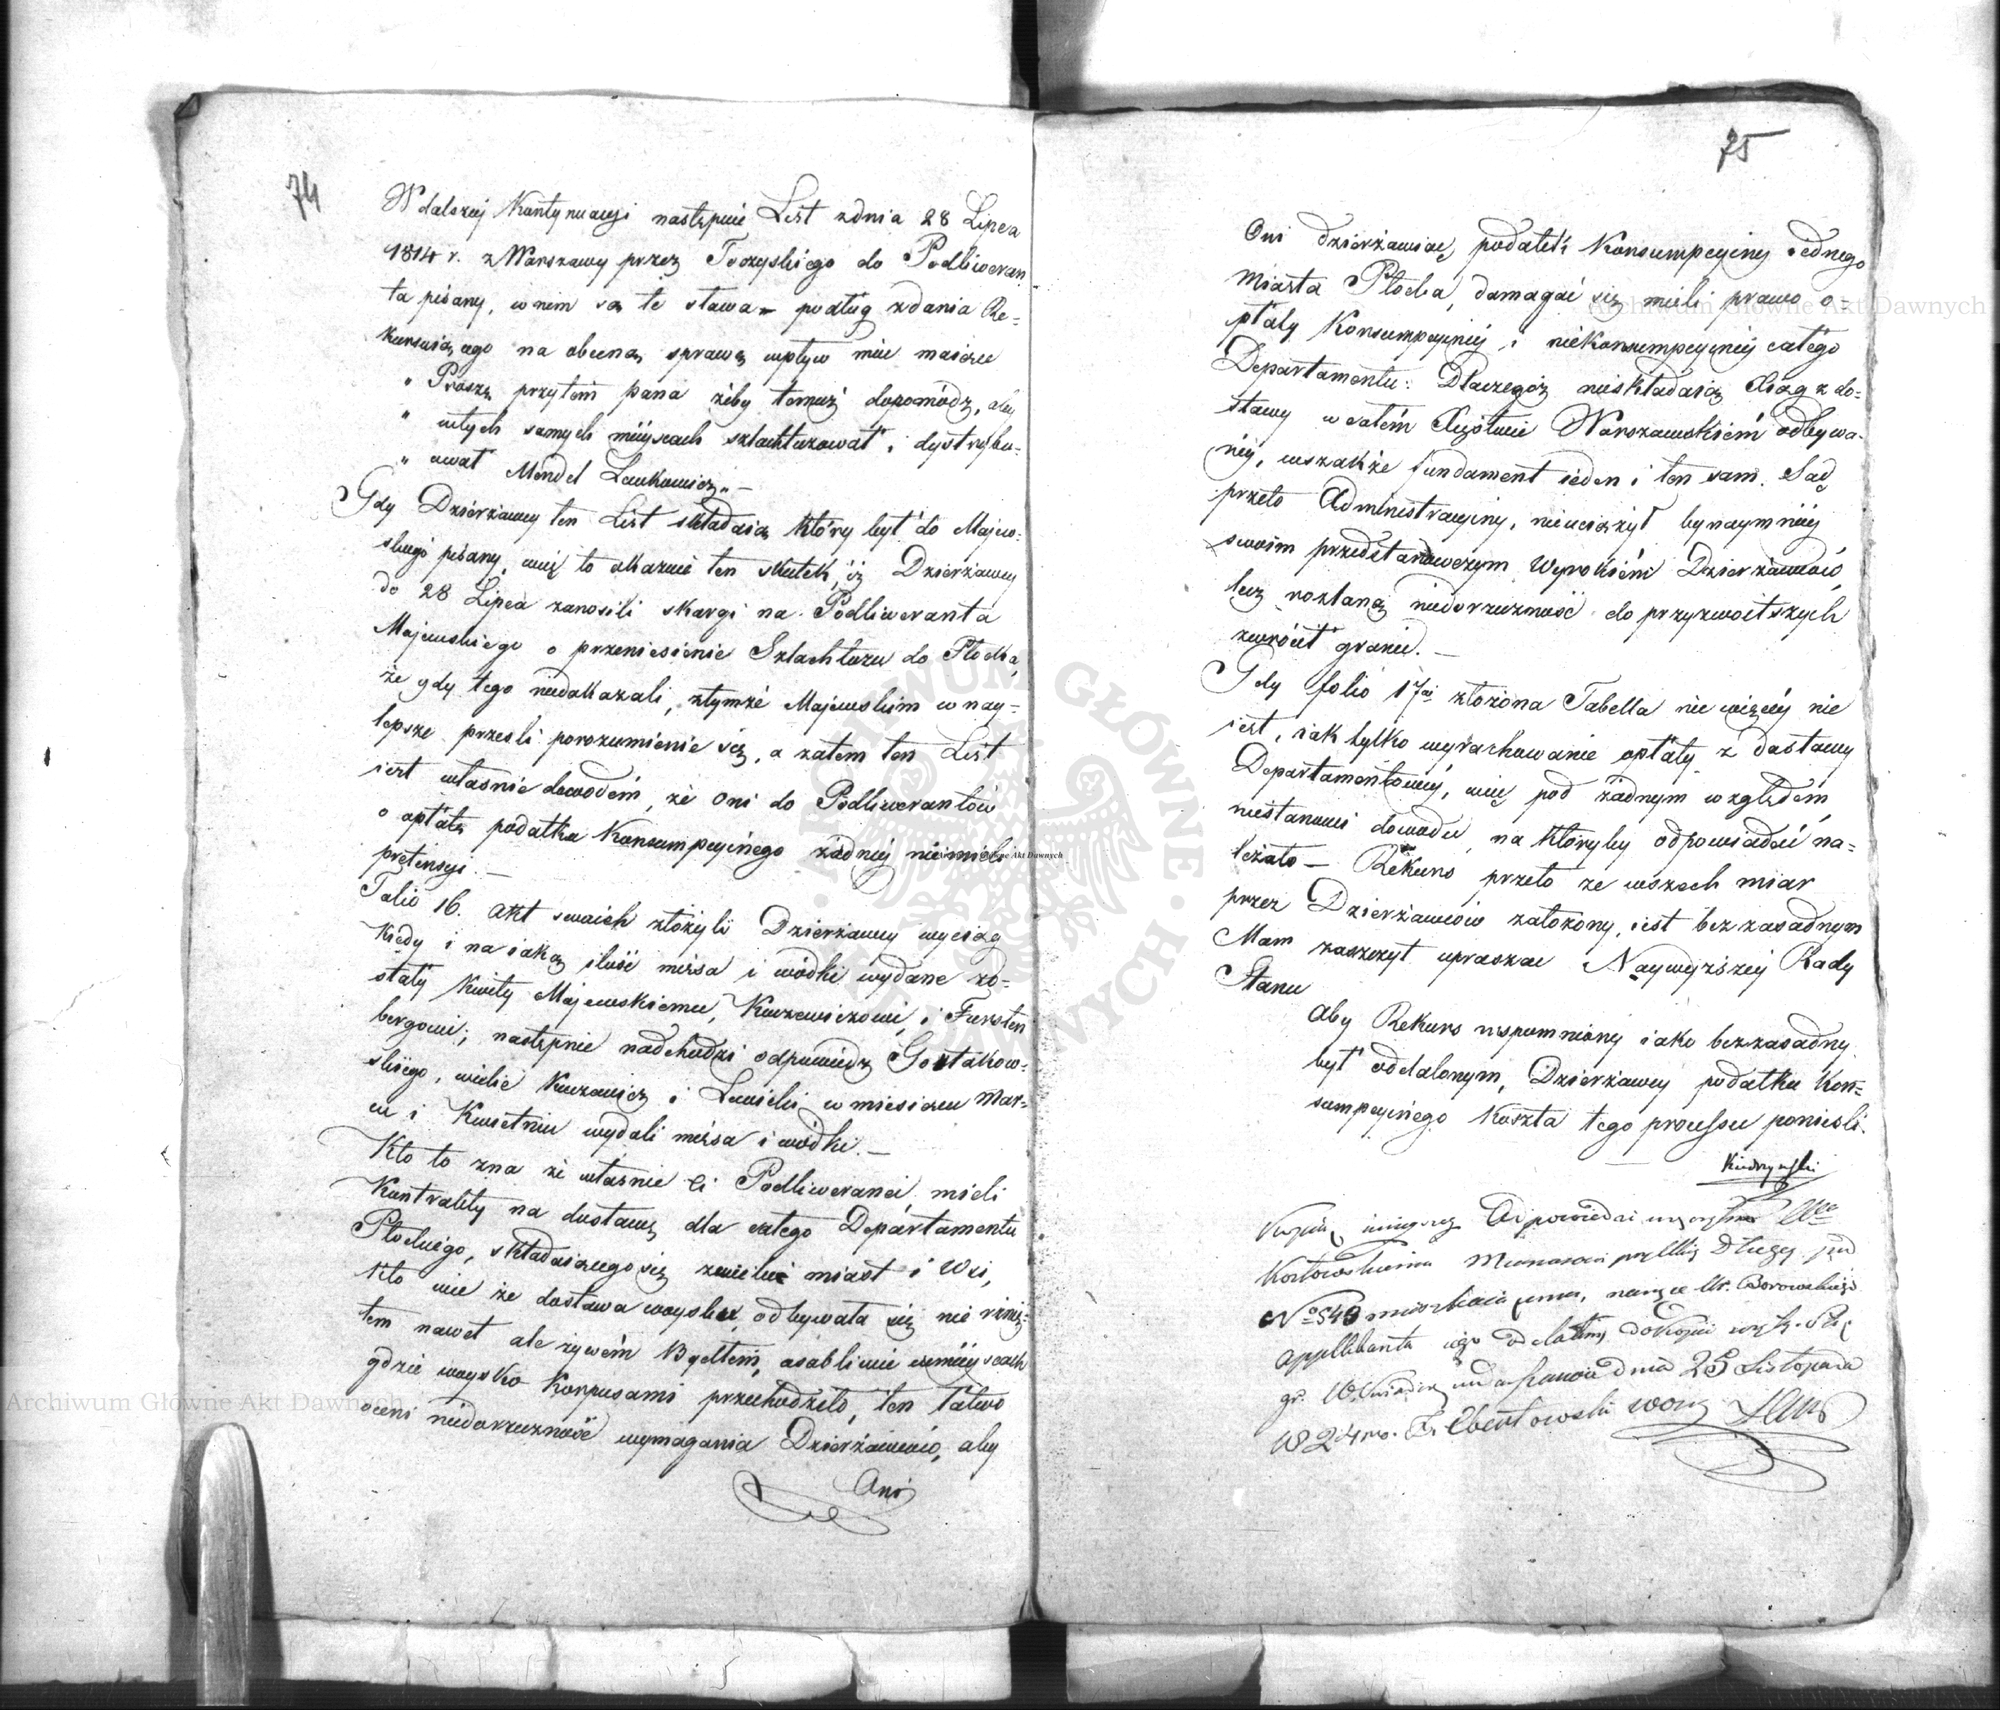 74
W dalszey Kontynuacyi następuie List z dnia 28 Lipca
1814 r. z Warszawy przez Toczyskiego do Podliweran
ta pisany, w nim są te słowa – podług zdania Re=
kursuiącego na obecną sprawę wpływ mieć maiące
„ Proszę przytem pana żeby temuż dopomódz, aby
„ w tych samych mieyscach szlachtuzował i dystrybu=
„ ował Mendel Laukowicz „ —
Gdy Dzierżawcy ten List składaią który był do Majew=
skiego pisany, więc to okazuie ten skutek, iż Dzierżawcy
do 28 Lipca zanosili skargi na Podliweranta
Majewskiego o przeniesienie Szlachtuzu do Płocka,
że gdy tego niedokazali, z tymże Majewskim w nay=
lepsze przeszli porozumienie się, a zatem ten List
iest właśnie dowodem, że oni do Podliwerantów
o opłatę podatku Konsumpcyinego żadney nie mieli
pretensyi. —
Folio 16. Akt swoich złożyli Dzierżawcy wyciąg
Kiedy i na iaką ilość mięsa i wódki wydane zo=
stały Kwity Majewskiemu, Kurzewiczowi, i Fursten
bergowi; następnie nadchodzi odpowiedz Gostakow=
skiego, wiele Kurzawicz i Lewicki w miesiącu Mar=
cu i Kwietniu wydali mięsa i wódki. —
Kto to zna że właśnie ci Podliweranci mieli
Kontrakty na dostawę dla całego Departamentu
Płockiego, składaiącego się z wielu miast i Wsi,
Kto wie że dostawa woysku odbywała się nie rżnię=
tem nawet ale żywém Bydłem, osobliwie w mieyscach
gdzie woysko Korpusami przechodziło, ten łatwo
oceni niedorzeczność wymagania Dzierżawców, aby
Oni
75
Oni dzierżawiąc podatek Konsumpcyiny iednego
Miasta Płocka, domagać się mieli prawo o=
płaty Konsumpcyiney i niekonsumpcyiney całego
Departamentu: Dlaczegóż nieskładaią Xiąg z do=
stawy w całém Xięstwie Warszawskiém odbywa=
ney, wszakże fundament ieden i ten sam. Sąd
przeto Administracyiny, nieuciążył bynaymniey
swoim przedstanowczym Wyrokiém Dzierżawców
lecz rozlaną niedorzeczność do przyzwoitszych
zwrócił granic. —
Gdy folio 17a złożona Tabella nie więcey nie
iest, iak tylko wyrachowanie opłaty z dostawy
Departamentowey, więc pod żadnym względem
niestanowi dowodu na któryby odpowiadać na=
leżało — Rekurs przeto ze wszech miar
przez Dzierżawców założony, iest bezzasadnym
Mam zaszczyt upraszać Naywyższey Rady
Stanu
Aby Rekurs wspomniony iako bezzasadny
był oddalonym, Dzierżawcy podatku Kon=
sumpcyinego Koszta tego processu ponieśli.
Kopię ninieyszey Odpowiedzi
Kozłowskiemu Mecenasowi przy Ulicy Długiey pod
No 549 mieszkaiącemu, na ręce W. Borowskiego
Applikanta
gr. w Warszawie dnia 25 Listopada
1824 ro.